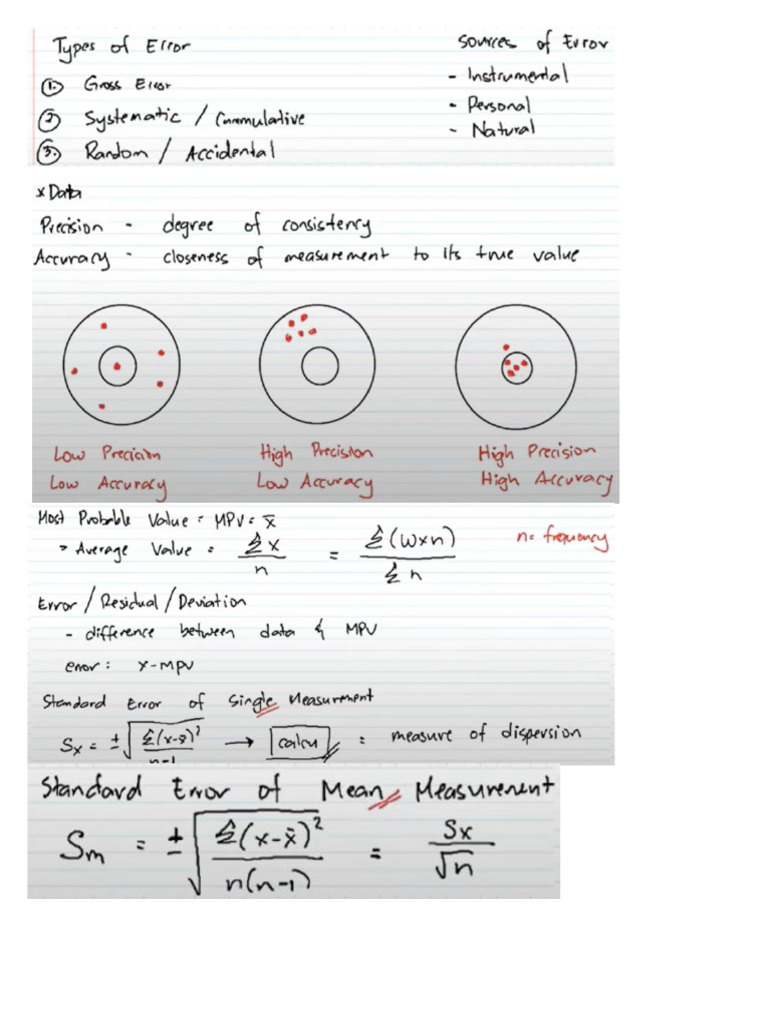 Types of Error
① Gross Error
② Systematic / Cummulative
③ Random / Accidental
Sources of Error
- Instrumental
- Personal
- Natural
* Data
Precision - degree of consistency
Accuracy - closeness of measurement to its true value
Low Precision
Low Accuracy
High Precision
Low Accuracy
High Precision
High Accuracy
Most Probable Value = MPV = x̄
> Average Value = Σx / n = Σ(w×n) / Σn
n= frequency
Error / Residual / Deviation
- difference between data & MPV
error: x-MPV
Standard Error of Single Measurement
Sx = ± √(Σ(x-x̄)² / n-1) → calcu = measure of dispersion
Standard Error of Mean Measurement
Sm = ± √(Σ(x-x̄)² / n(n-1)) = Sx / √n